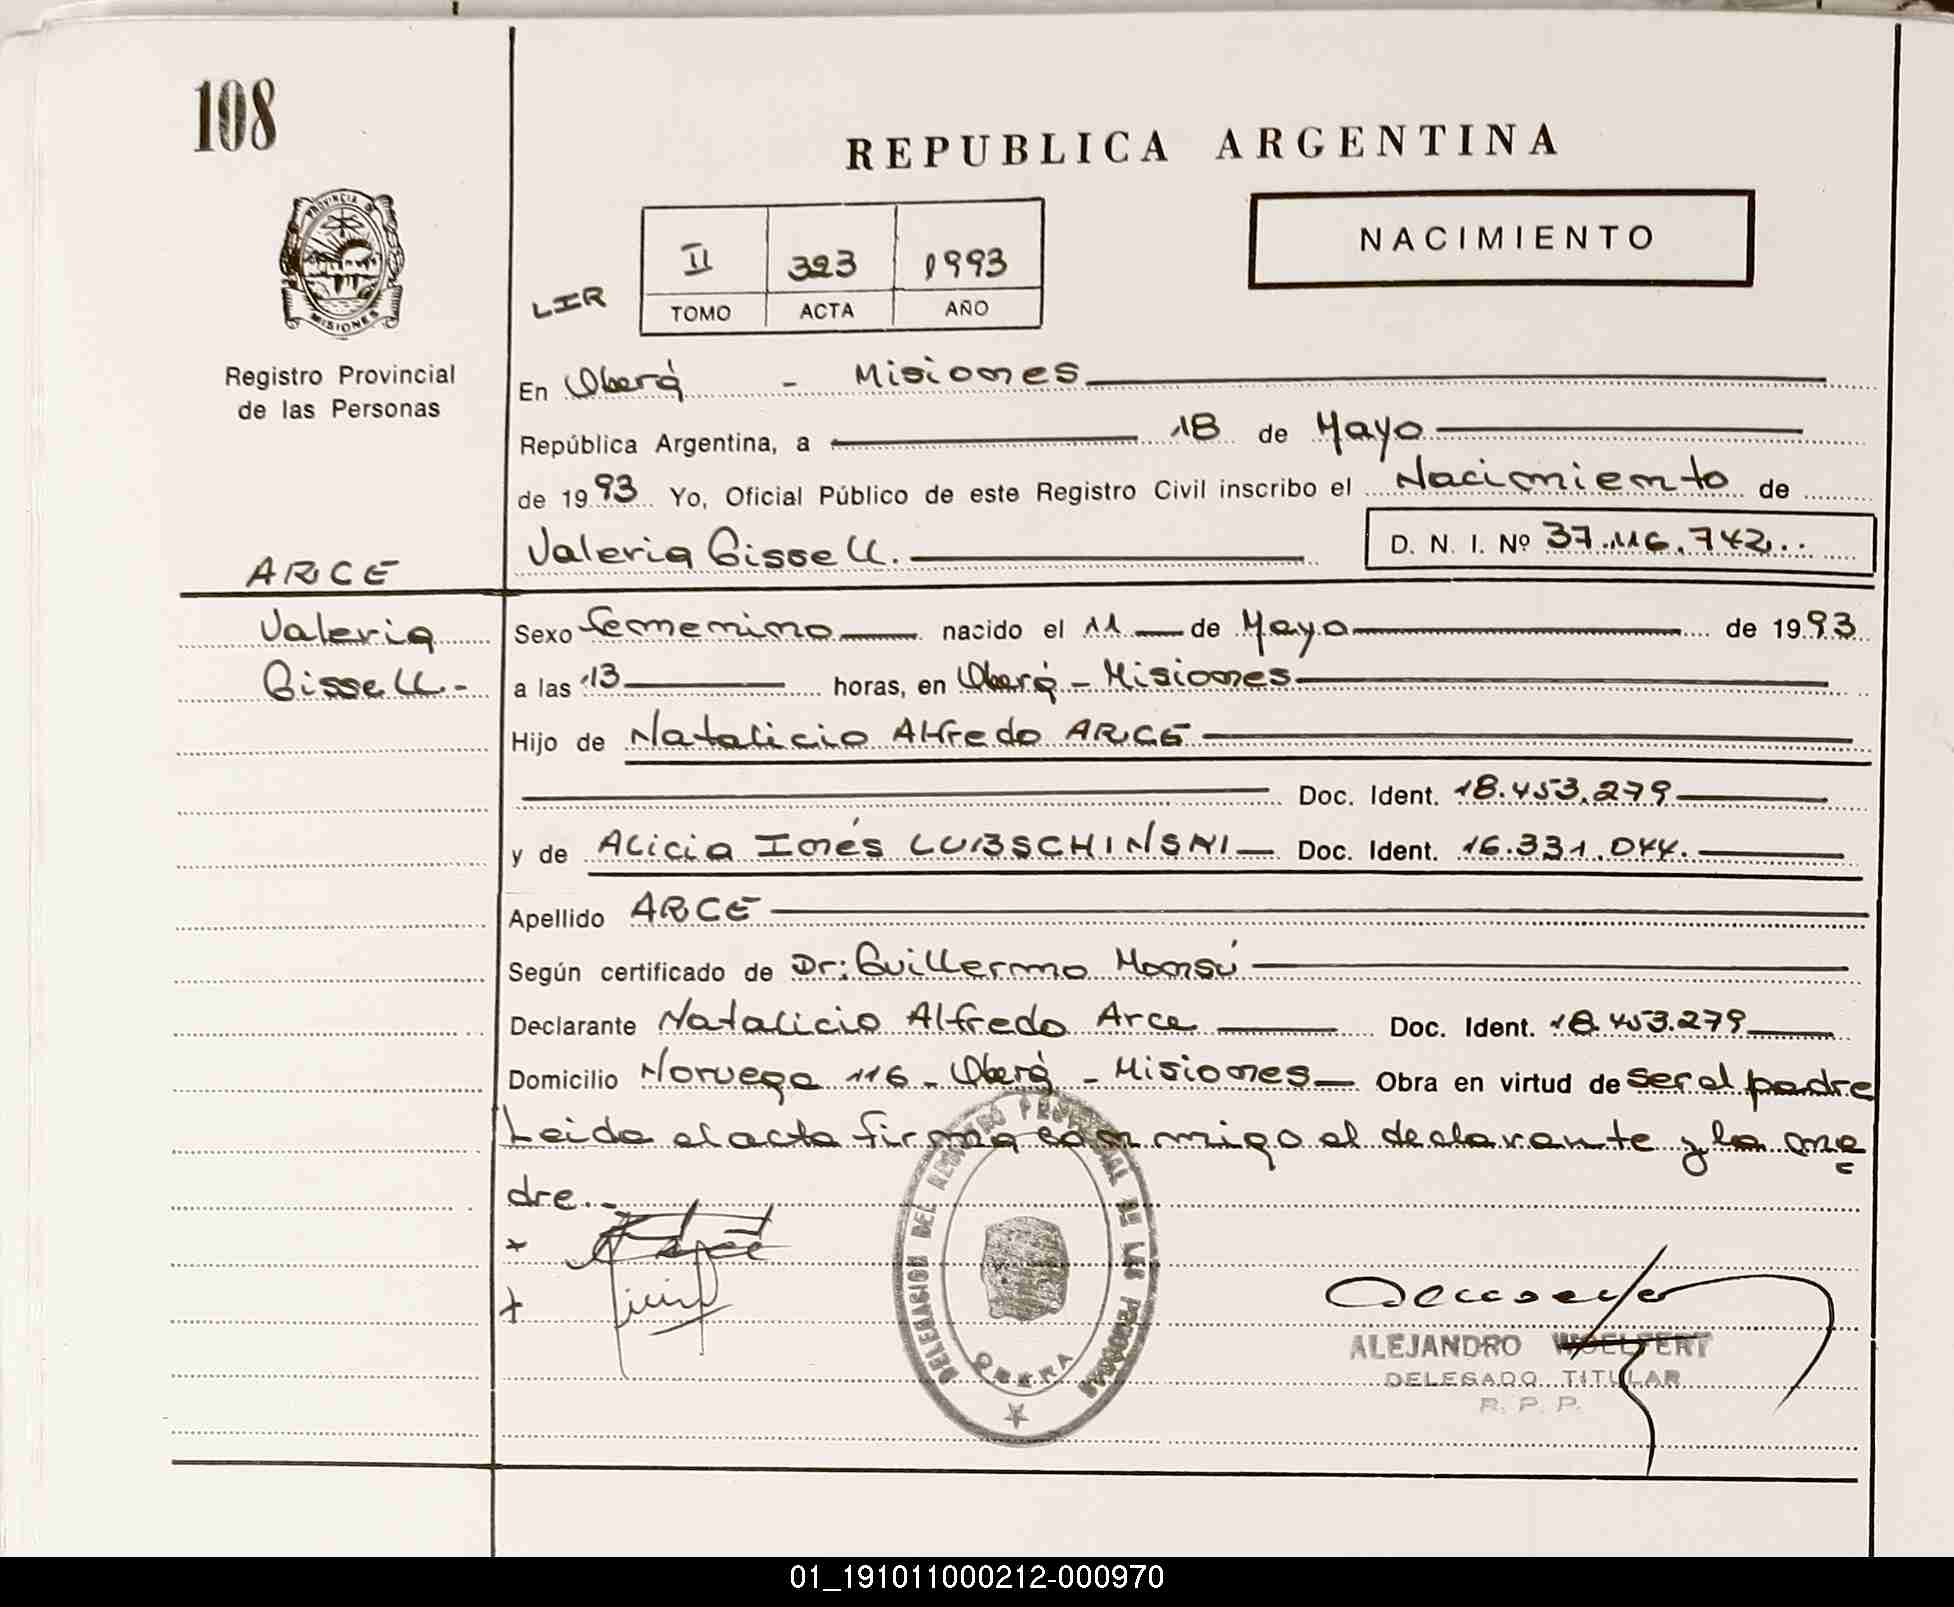 108
REPUBLICA ARGENTINA
PROVINCIA DE
MISIONES
NACIMIENTO
II 323 1993
LIR
TOMO ACTA AÑO
Registro Provincial
de las Personas
En Oberá - Misiones
República Argentina, a 18 de Mayo
de 1993 Yo, Oficial Público de este Registro Civil inscribo el Nacimiento de
Valeria Gissell. D. N. I. Nº 37.116.742..
ARCE
Valeria
Gissell.-
Sexo femenino nacido el 11 de Mayo de 1993
a las 13 horas, en Oberá - Misiones
Hijo de Natalicio Alfredo ARCE
Doc. Ident. 18.453.279
y de Alicia Inés LUBSCHINSKI Doc. Ident. 16.331.044.
Apellido ARCE
Según certificado de Dr: Guillermo Monsú
Declarante Natalicio Alfredo Arce Doc. Ident. 18.453.279
Domicilio Noruega 116 - Oberá - Misiones Obra en virtud de ser el padre
Leida el acta firma conmigo el declarante y la ma
dre.-
DELEGACION DEL REGISTRO PROVINCIAL DE LAS PERSONAS
OBERA
ALEJANDRO WOELFERT
DELEGADO TITULAR
R. P. P.
01_191011000212-000970